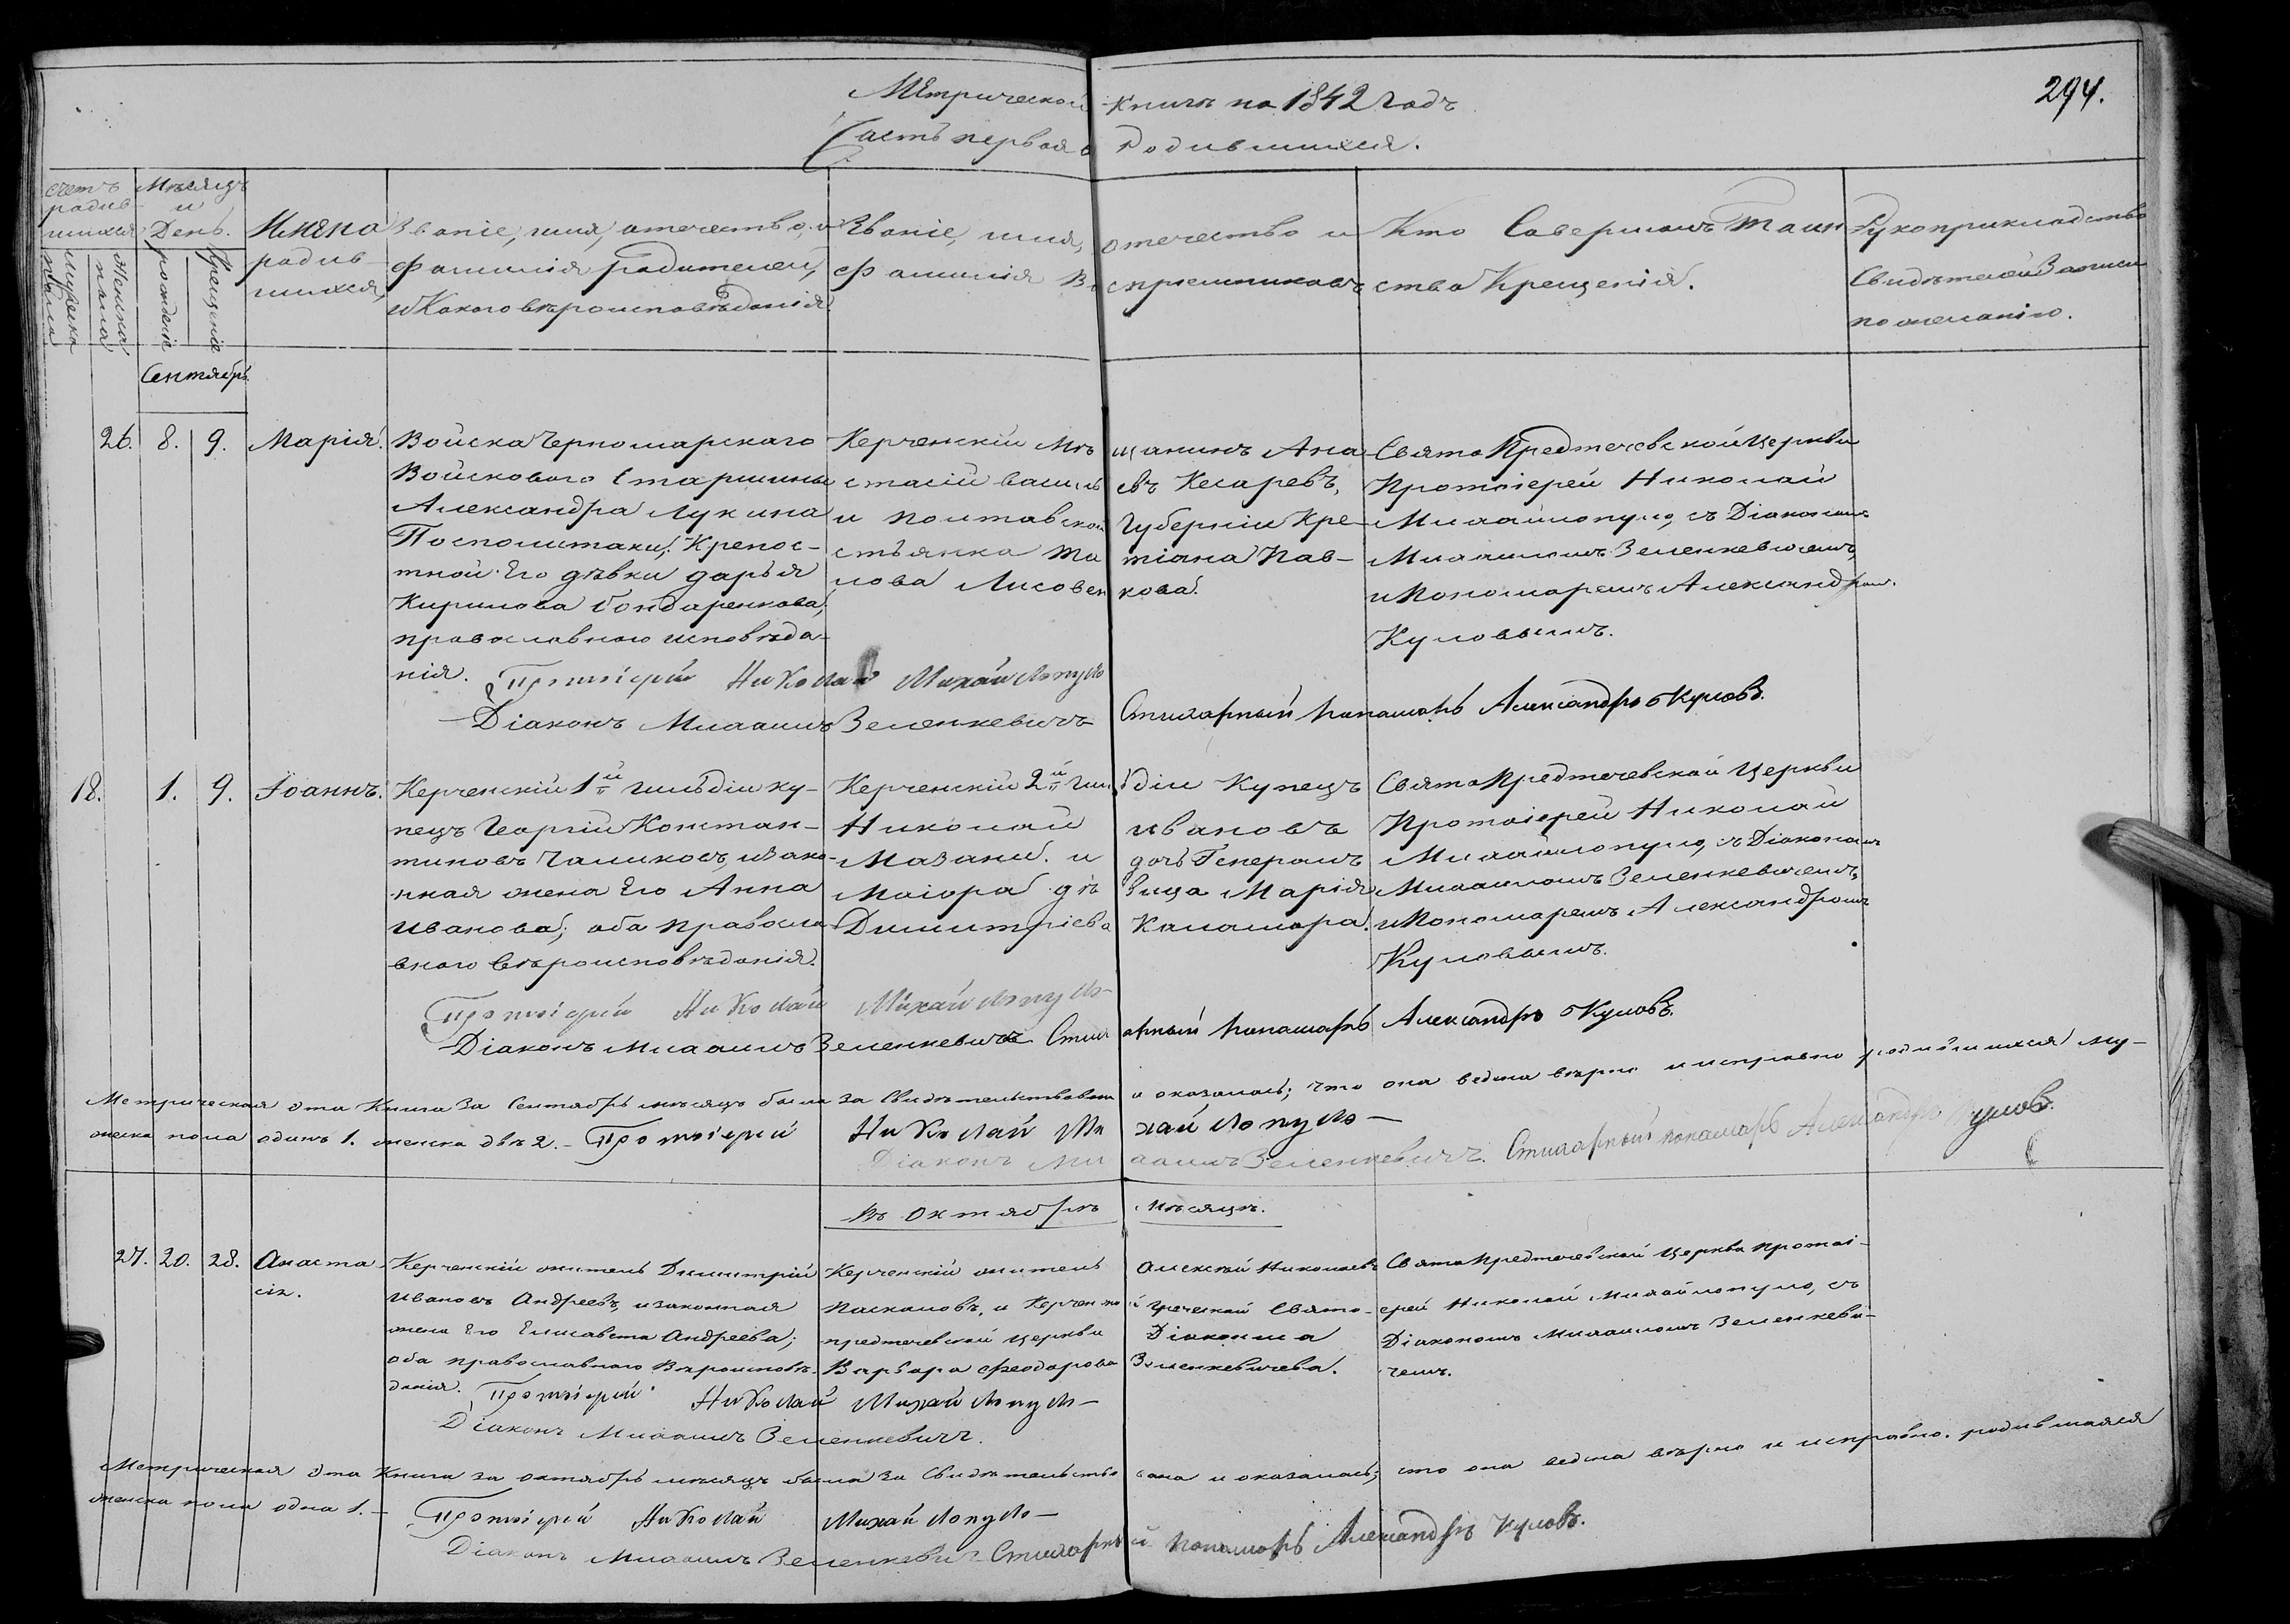 294.
Метрической книги на 1842 годъ
Часть первая о Родившихся.
счетъ родив-шихся
мужеска пола
женска пола
Мѣсяцъ и День.
рожденіе
крещеніе
Имена родив-шихся
Званіе, имя, отечество, и фамилія родителей, и Какого вѣроисповѣданія.
Званіе, имя, отечество и фамилія воспріемниковъ
Кто Совершалъ Таинство Крещенія.
Рукоприкладство Свидѣтелей Записи по желанію.
Сентябрь
26. 8. 9. Марія.
Войска Черноморскаго
Войсковаго Старшины
Александра Лукина
Посполитаки, Крепос-
тной Его дѣвки дарья
Кирилова бондаренкова,
православного исповѣда-
нія.
Керченскій мѣщанинъ Ана
стасій василь евъ Кесаревъ,
и полтавской Губерніи Кре
стьянка Татіана Пав-
лова Лисовен кова.
Свято Предтечевской Церкви
Протоіерей Николай
Михайлопуло, съ Діакономъ
Михаиломъ Зеленкевичемъ,
и Пономаремъ Александромъ
Куловымъ.
Протоіерей Николай Михайлопуло
Діаконъ Михаилъ Зеленкевичъ Стихарный понамарь Александръ Куловъ.
18. 1. 9. Іоаннъ.
Керченскій 1й гильдіи ку-
пецъ Георгій Констан-
тиновъ Чаликовъ, и зако-
нная жена Его Анна
Иванова; оба правосла-
вного вѣроисповѣданія.
Керченскій 2й гильдіи Купецъ
Николай ивановъ
Мазани. и дочь Генералъ
Маіора дѣвица Марія
Димитріева Каламара.
Свято Предтечевской Церкви
Протоіерей Николай
Михайлопуло, съ Діакономъ
Михаиломъ Зеленкевичемъ,
и Пономаремъ Александромъ
Куловымъ.
Протоіерей Николай Михайлопуло
Діаконъ Михаилъ Зеленкевичъ Стихарный понамарь Александръ Куловъ.
Метрическая эта Книга за Сентябрь мѣсяцъ была за Свидѣтельствована и оказалось; что она ведена вѣрно и исправно родившихся му-
жеска пола одинъ 1. женска двѣ 2. – Протоіерей Николай Михайлопуло
Діаконъ Михаилъ Зеленкевичъ. Стихарный понамарь Александръ Куловъ.
Въ Октябрѣ мѣсяцѣ.
27. 20. 28. Анаста
сія.
Керченскій житель Димитрій
Ивановъ Андреевъ, и законная
жена Его Елисавета Андреева;
оба православнаго Вѣроисповѣ-
данія.
Керченскій житель Алексѣй Николаевъ
Паскаловъ, и Керченской Греческой Свято-
предтечевской Церкви Діаконша
Варвара Феодорова Зеленкевичева.
Свято Предтечевской Церкви протоі-
ерей Николай Михайлопуло, съ
Діакономъ Михаиломъ Зеленкеви-
чемъ.
Протоіерей Николай Михайлопуло
Діаконъ Михаилъ Зеленкевичъ.
Метрическая эта Книга за октябрь мѣсяцъ была за Свидѣтельство вана и оказалась; что она ведена вѣрно и исправно. родившаяся
женска пола одна 1. –
Протоіерей Николай Михайлопуло
Діаконъ Михаилъ Зеленкевичъ Стихарный понамарь Александръ Куловъ.